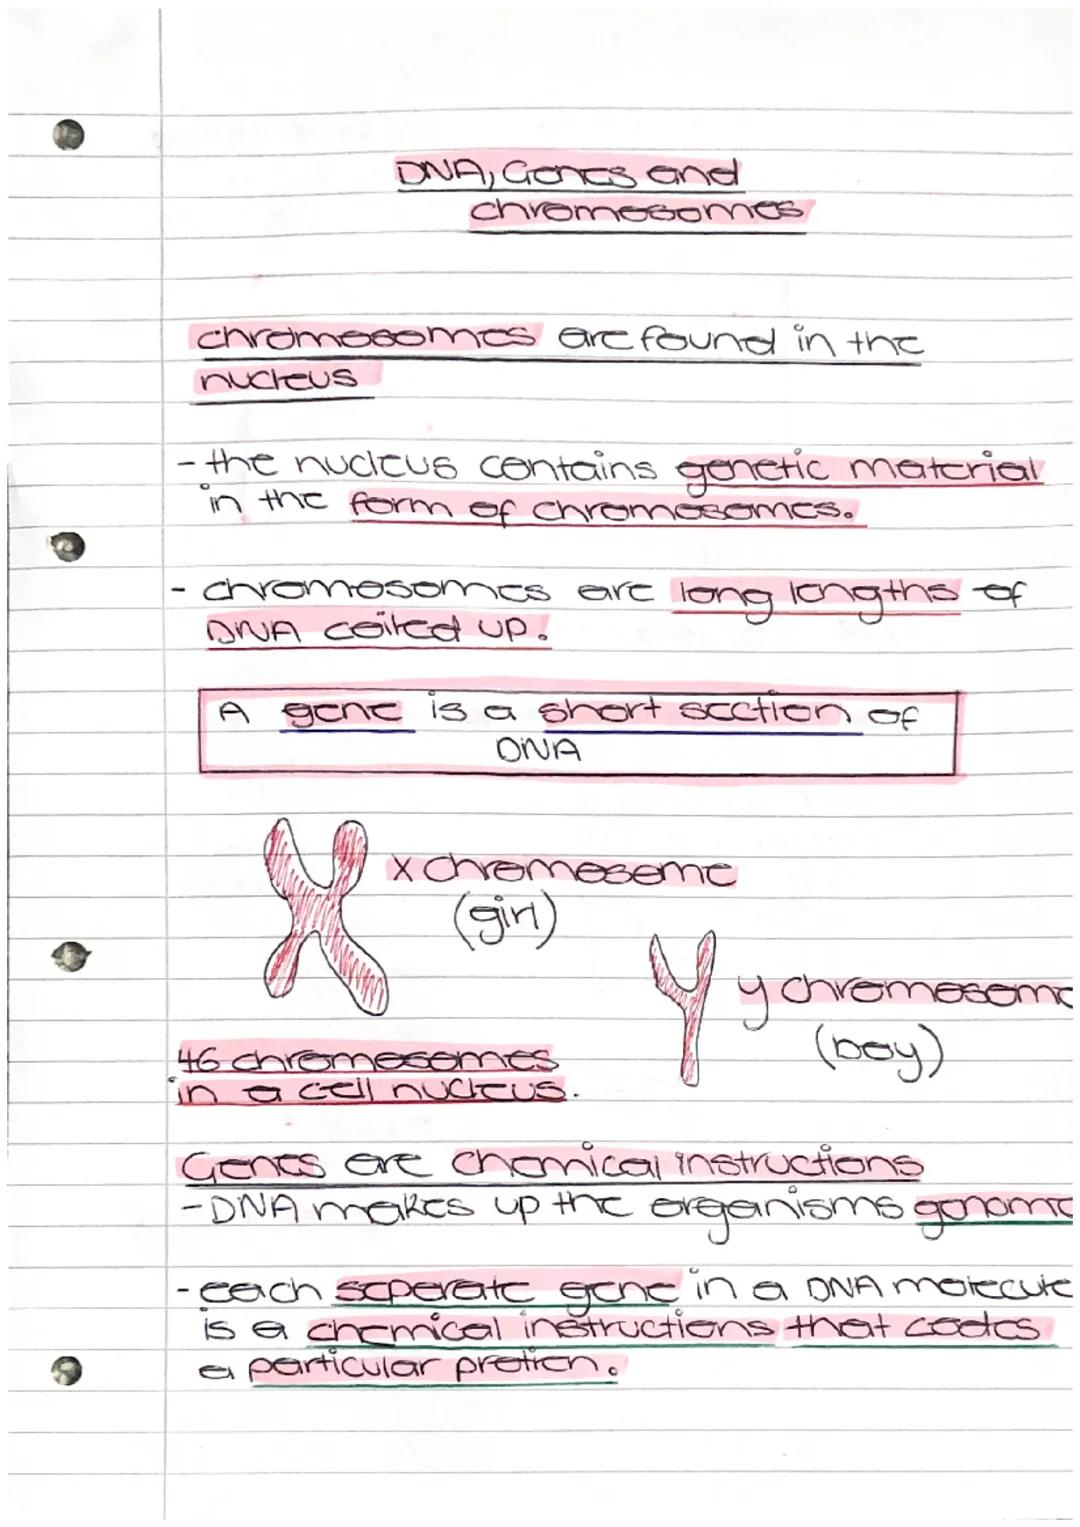 DNA, Genes and
chromosomes
chromosomes are found in the
nucleus
- the nucleus contains genetic material
in the form of chromosomes.
- chromosomes are long lengths of
DNA coiled up.
A gene is a short section of
DNA
X chromosome
(girl)
y chromosome
(boy)
46 chromosomes
in a cell nucleus.
Genes are chemical instructions
- DNA makes up the organisms genome
- each seperate gene in a DNA molecule
is a chemical instructions that codes
a particular protien.